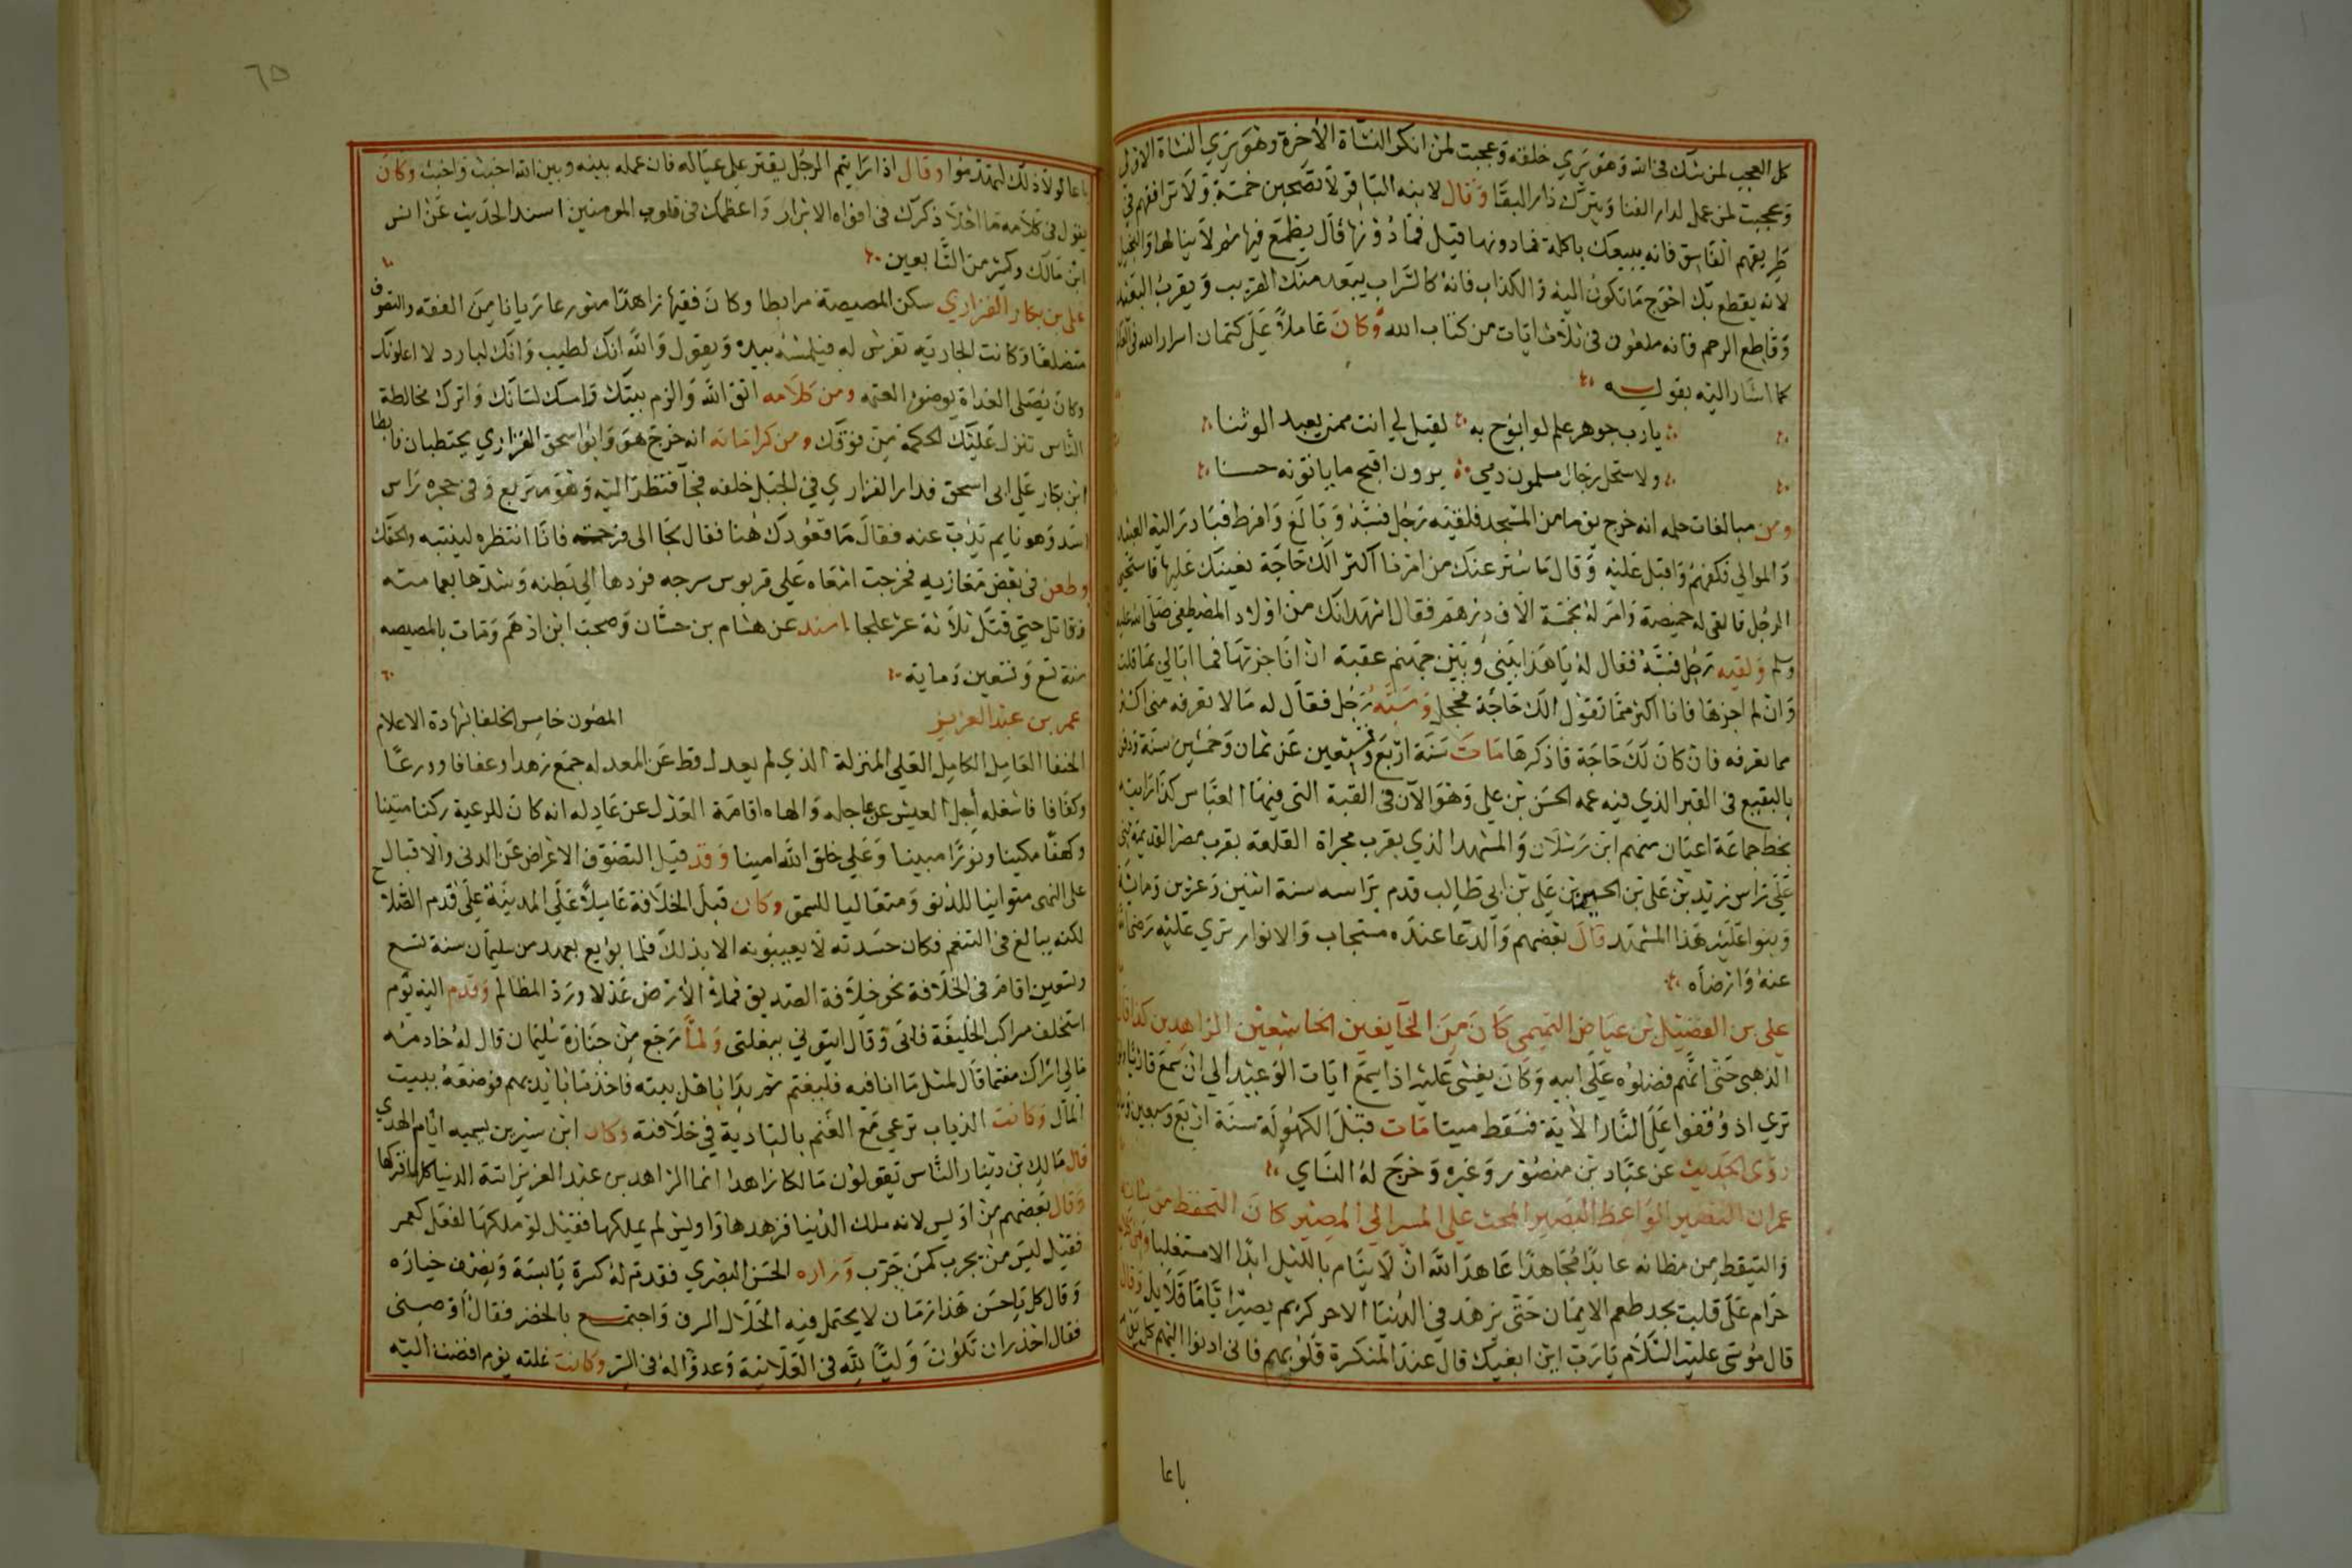 كل العجب لمن شك في الله وهو يري خلقه وعجبت لمن انكر النشاة الاخرة وهو يري النشاة الاولي
وعجبت لمن عمل لدار الفنا ويترك دار البقا وقال لابنه الباقر لا تصحبن خمسة ولا ترافقهم في
طريقهم الفاسق فانه يبيعك باكلة فما دونها قيل فما دونها قال يطمع فيها ثم لا ينالها والبخيل
لانه يقطع بك احوج ما تكون اليه والكذاب فانه كالسراب يبعد منك القريب ويقرب البعيد
وقاطع الرحم فانه ملعون في ثلاث ايات من كتاب الله وكان عاملا علي كتمان اسرار الله في
كما اشار اليه بقوله
يا رب جوهر علم لو ابوح به لقيل لي انت ممن يعبد الوثنا
ولاستحل رجال مسلمون دمي يرون اقبح ما ياتونه حسنا
ومن مبالغات حلمه انه خرج يوما من المسجد فلقيه رجل فسبه وبالغ وافرط فبادر اليه العبيد
والموالي فكفهم واقبل عليه وقال ما ستر عنك من امرنا اكثر الك حاجة نعينك عليها فاستحيي
الرجل فالقي له خميصة وامر له بخمسة الاف درهم فقال اشهد انك من اولاد المصطفي صلي الله عليه
وسلم ولقيه رجل فسبه فقال له يا هذا بيني وبين جهنم عقبة ان انا جزتها فما ابالي بما قلت
وان لم اجزها فانا اكثر مما تقول الك حاجة فخجل وسبه رجل فقال له ما لا تعرفه مني اكثر
مما تعرفه فان كان لك حاجة فاذكرها مات سنة اربع وتسعين عن ثمان وخمسين سنة ودفن
بالبقيع في القبر الذي فيه عمه الحسن بن علي وهو الآن في القبة التي فيها العباس كذا رايته
بخط جماعة اعيان منهم ابن رسلان والمشهد الذي بقرب مجراة القلعة بقرب مصر القديمة بني
علي راس زيد بن علي بن الحسين بن علي بن ابي طالب قدم براسه سنة اثنين وعشرين ومائة
وبنوا عليه هذا المشهد قال بعضهم والدعا عنده مستجاب والانوار تري عليه رضي الله
عنه وارضاه
علي بن الفضيل بن عياض التميمي كان من الخايفين الخاشعين الزاهدين كذا قال
الذهبي حتي انهم فضلوه علي ابيه وكان يغشي عليه اذا سمع ايات الوعيد الي ان سمع قارئا
تري اذ وقفوا علي النار الاية فسقط ميتا مات قبل الكهولة سنة اربع وسبعين
روي الحديث عن عباد بن منصور وغيره وخرج له النساي
عمران القصير الواعظ البصير المحث علي المسير الي المصير كان التحفظ من شانه
والتيقظ من مظانه عابدا مجاهدا عاهد الله ان لا ينام بالليل ابدا الا مستغلبا
حرام علي قلب يجد طعم الايمان حتي يزهد في الدنيا الا حر كريم يصبر اياما قلايل وقال
قال موسي عليه السلام يا رب اين ابغيك قال عند المنكسرة قلوبهم فاني ادنوا اليهم كل يوم
باعا
٦٥
باعا لولا ذلك لتهدموا وقال اذا رايتم الرجل يقتر علي عياله فان عمله بينه وبين الله اخبث واخبث وكان
يقول في كلامه ما احلا ذكرك في افواه الابرار واعظمك في قلوب المومنين اسند الحديث عن انس
ابن مالك وكثير من التابعين
علي بن بكار الفزاري سكن المصيصة مرابطا وكان فقيها زاهدا متورعا ريانا من الفقه والتصوف
متضلعا وكانت الجارية تفرش له فيلمسه بيده ويقول والله انك لطيب وانك لبارد لا اعلونك
وكان يصلي الغداة بوضوء العتمه ومن كلامه اتق الله والزم بيتك وامسك لسانك واترك مخالطة
الناس تنزل عليك الحكمة من فوقك ومن كراماته انه خرج هو وابو اسحق الفزاري يحتطبان فابطا
ابن بكار علي ابي اسحق فدار الفزاري في الجبل خلفه فجا فنظر اليه وهو متربع وفي حجره راس
اسد وهو نايم يذب عنه فقال ما قعودك هنا فقال لجا الي فرحمته فانا انتظره لينتبه والحقك
وطعن في بعض مغازيه فخرجت امعاه علي قربوس سرجه فردها الي بطنه وشدها بعمامته
وقاتل حتي قتل ثلاثة عشر علجا اسند عن هشام بن حسان وصحب ابن ادهم ومات بالمصيصه
سنة تسع وتسعين وماية
عمر بن عبد العزيز المصون خامس الخلفا بشهادة الاعلام
الحنفا العامل الكامل العلي المنزلة الذي لم يعدل قط عن المعدله جمع زهدا وعفافا وورعا
وكفافا فاشغله اجل العيش عن عاجله والهاه اقامة العدل عن عادله انه كان للرعية ركنا متينا
وكهفا مكينا ونورا مبينا وعلي خلق الله امينا وقد قيل التصوف الاعراض عن الدني والاقبال
علي النهي متوانيا للدنو ومتعاليا للسمو وكان قبل الخلافة عاملا علي المدينة علي قدم الصلاح
لكنه يبالغ في التنعم فكان حسدته لا يعيبونه الا بذلك فلما بويع بعهد من سليمان سنة تسع
وتسعين اقام في الخلافة نحو خلافة الصديق فملا الارض عدلا ورد المظالم وقدم اليه يوم
استخلف مراكب الخليفة فابي وقال ايتوني ببغلتي ولما رجع من جنازة سليمان قال له خادمه
مالي اراك مغتما قال لمثل ما انا فيه فليغتم ثم بدا باهل بيته فاخذ ما بايديهم فوضعه ببيت
المال وكانت الذياب ترعي مع الغنم بالبادية في خلافته وكان ابن سيرين يسميه امام الهدي
قال مالك بن دينار الناس يقولون مالكا زاهدا انما الزاهد بن عبد العزيز اتته الدنيا كلها فتركها
وقال بعضهم من اويس لانه ملك الدنيا فزهدها واويس لم يملكها فقيل لو ملكها لفعل كعمر
فقيل ليس من يجرب كمن جرب وزاره الحسن البصري فقدم له كسرة يابسة ونصف خياره
وقال كل يا حسن هذا زمان لا يحتمل فيه الحلال السرف واجتمع بالخضر فقال اوصيني
فقال احذر ان تكون وليا لله في العلانية وعدوا له في السر وكانت غلته يوم افضت اليه